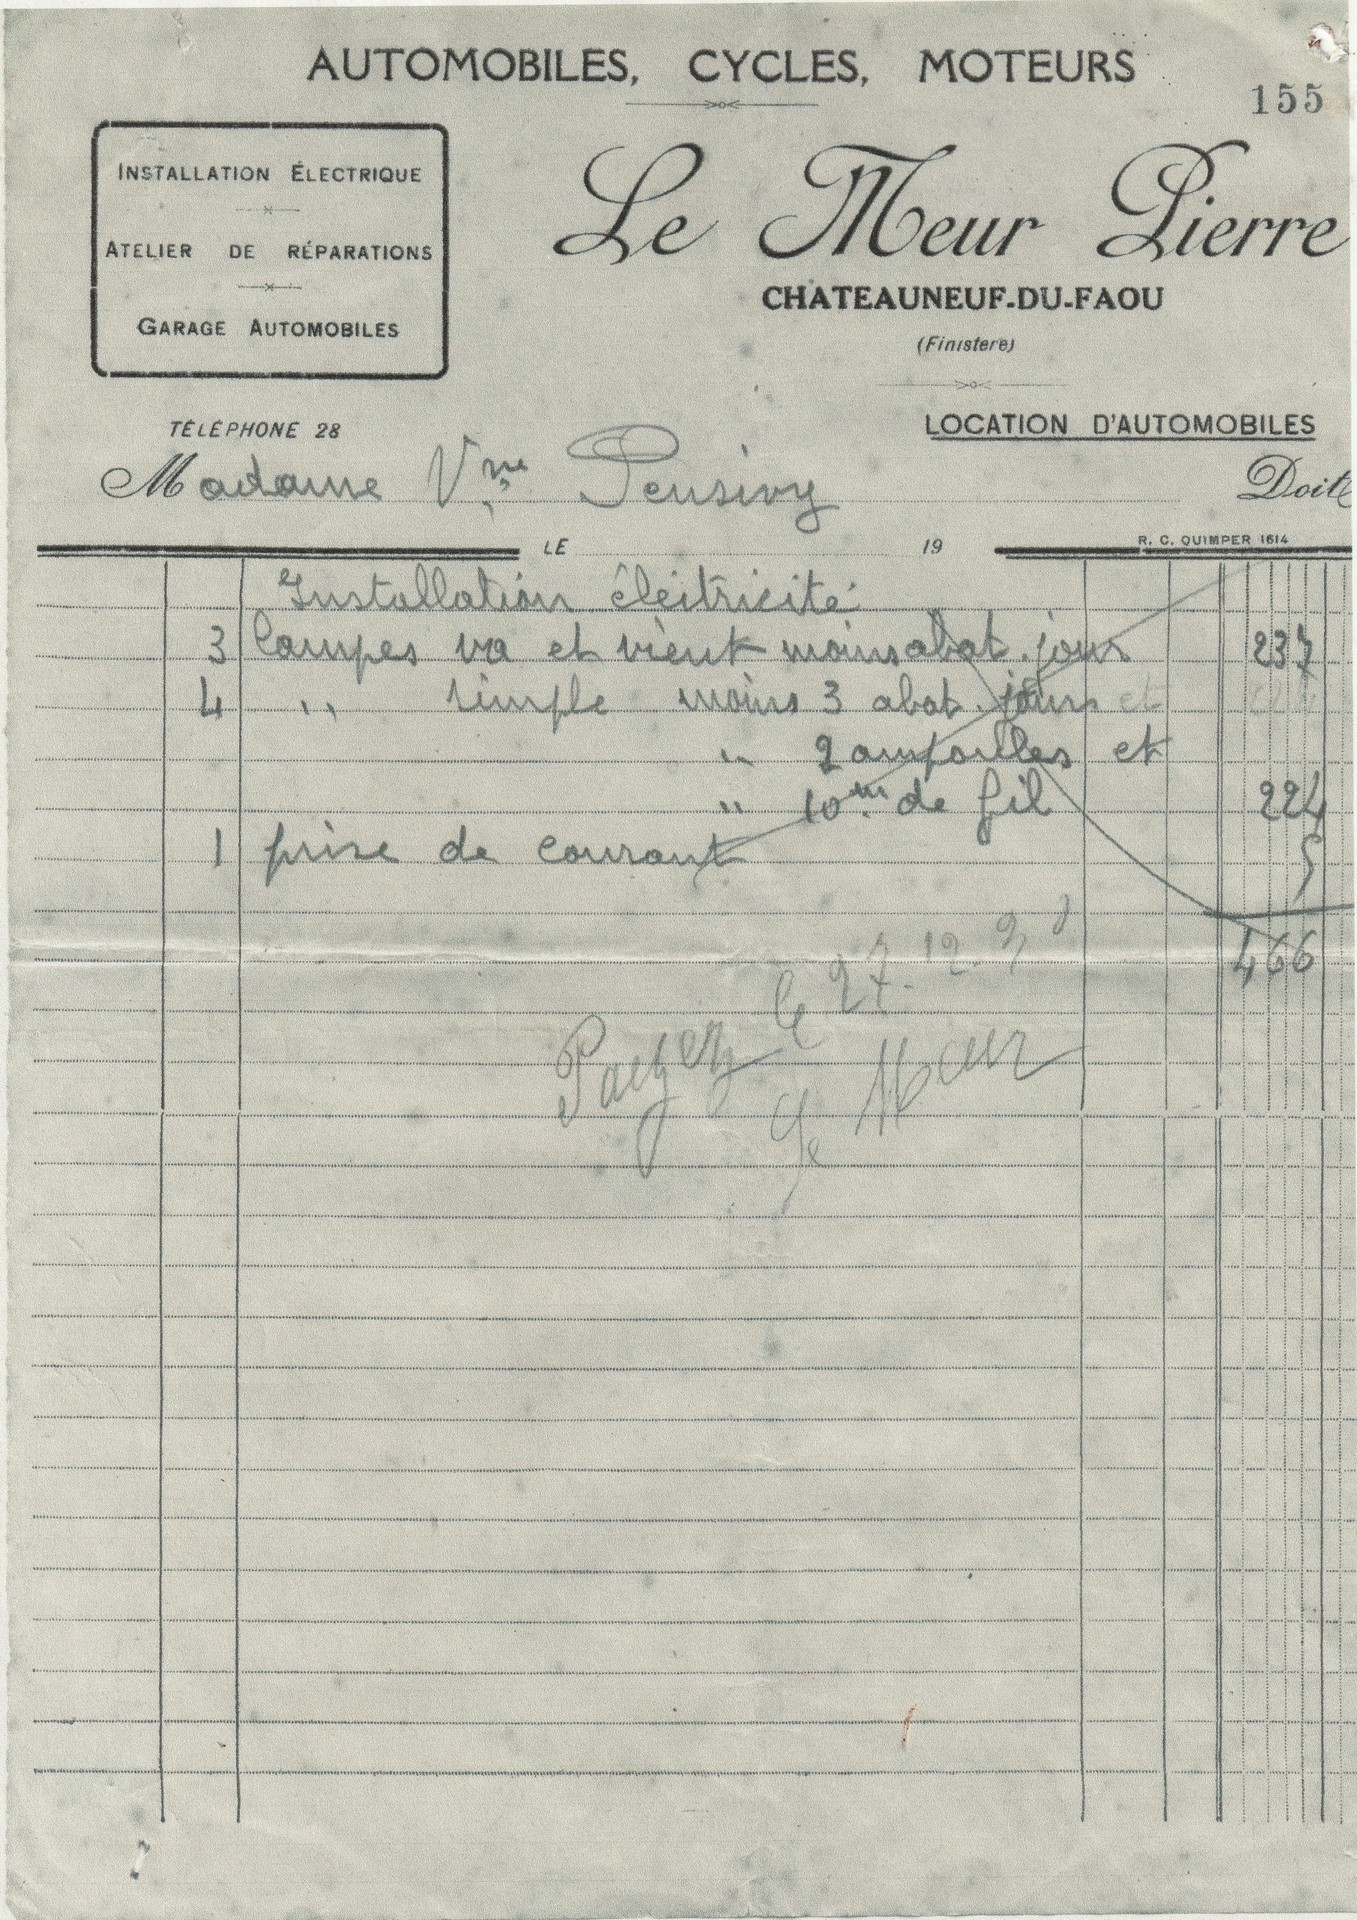 AUTOMOBILES, CYCLES, MOTEURS
155
INSTALLATION ÉLECTRIQUE
ATELIER DE RÉPARATIONS
GARAGE AUTOMOBILES
Le Meur Pierre
CHATEAUNEUF-DU-FAOU
(Finistere)
TÉLÉPHONE 28
LOCATION D'AUTOMOBILES
Madame Vve Pensivy Doit
LE 19 R. C. QUIMPER 1614
Installation électricité
3 lampes va et vient moins abat. jour 237
4 " simple moins 3 abat. jours et
" 2 ampoulles et
" 10m de fil 224
1 prise de courant 5
466
Payez le 27.12.28
Le Meur